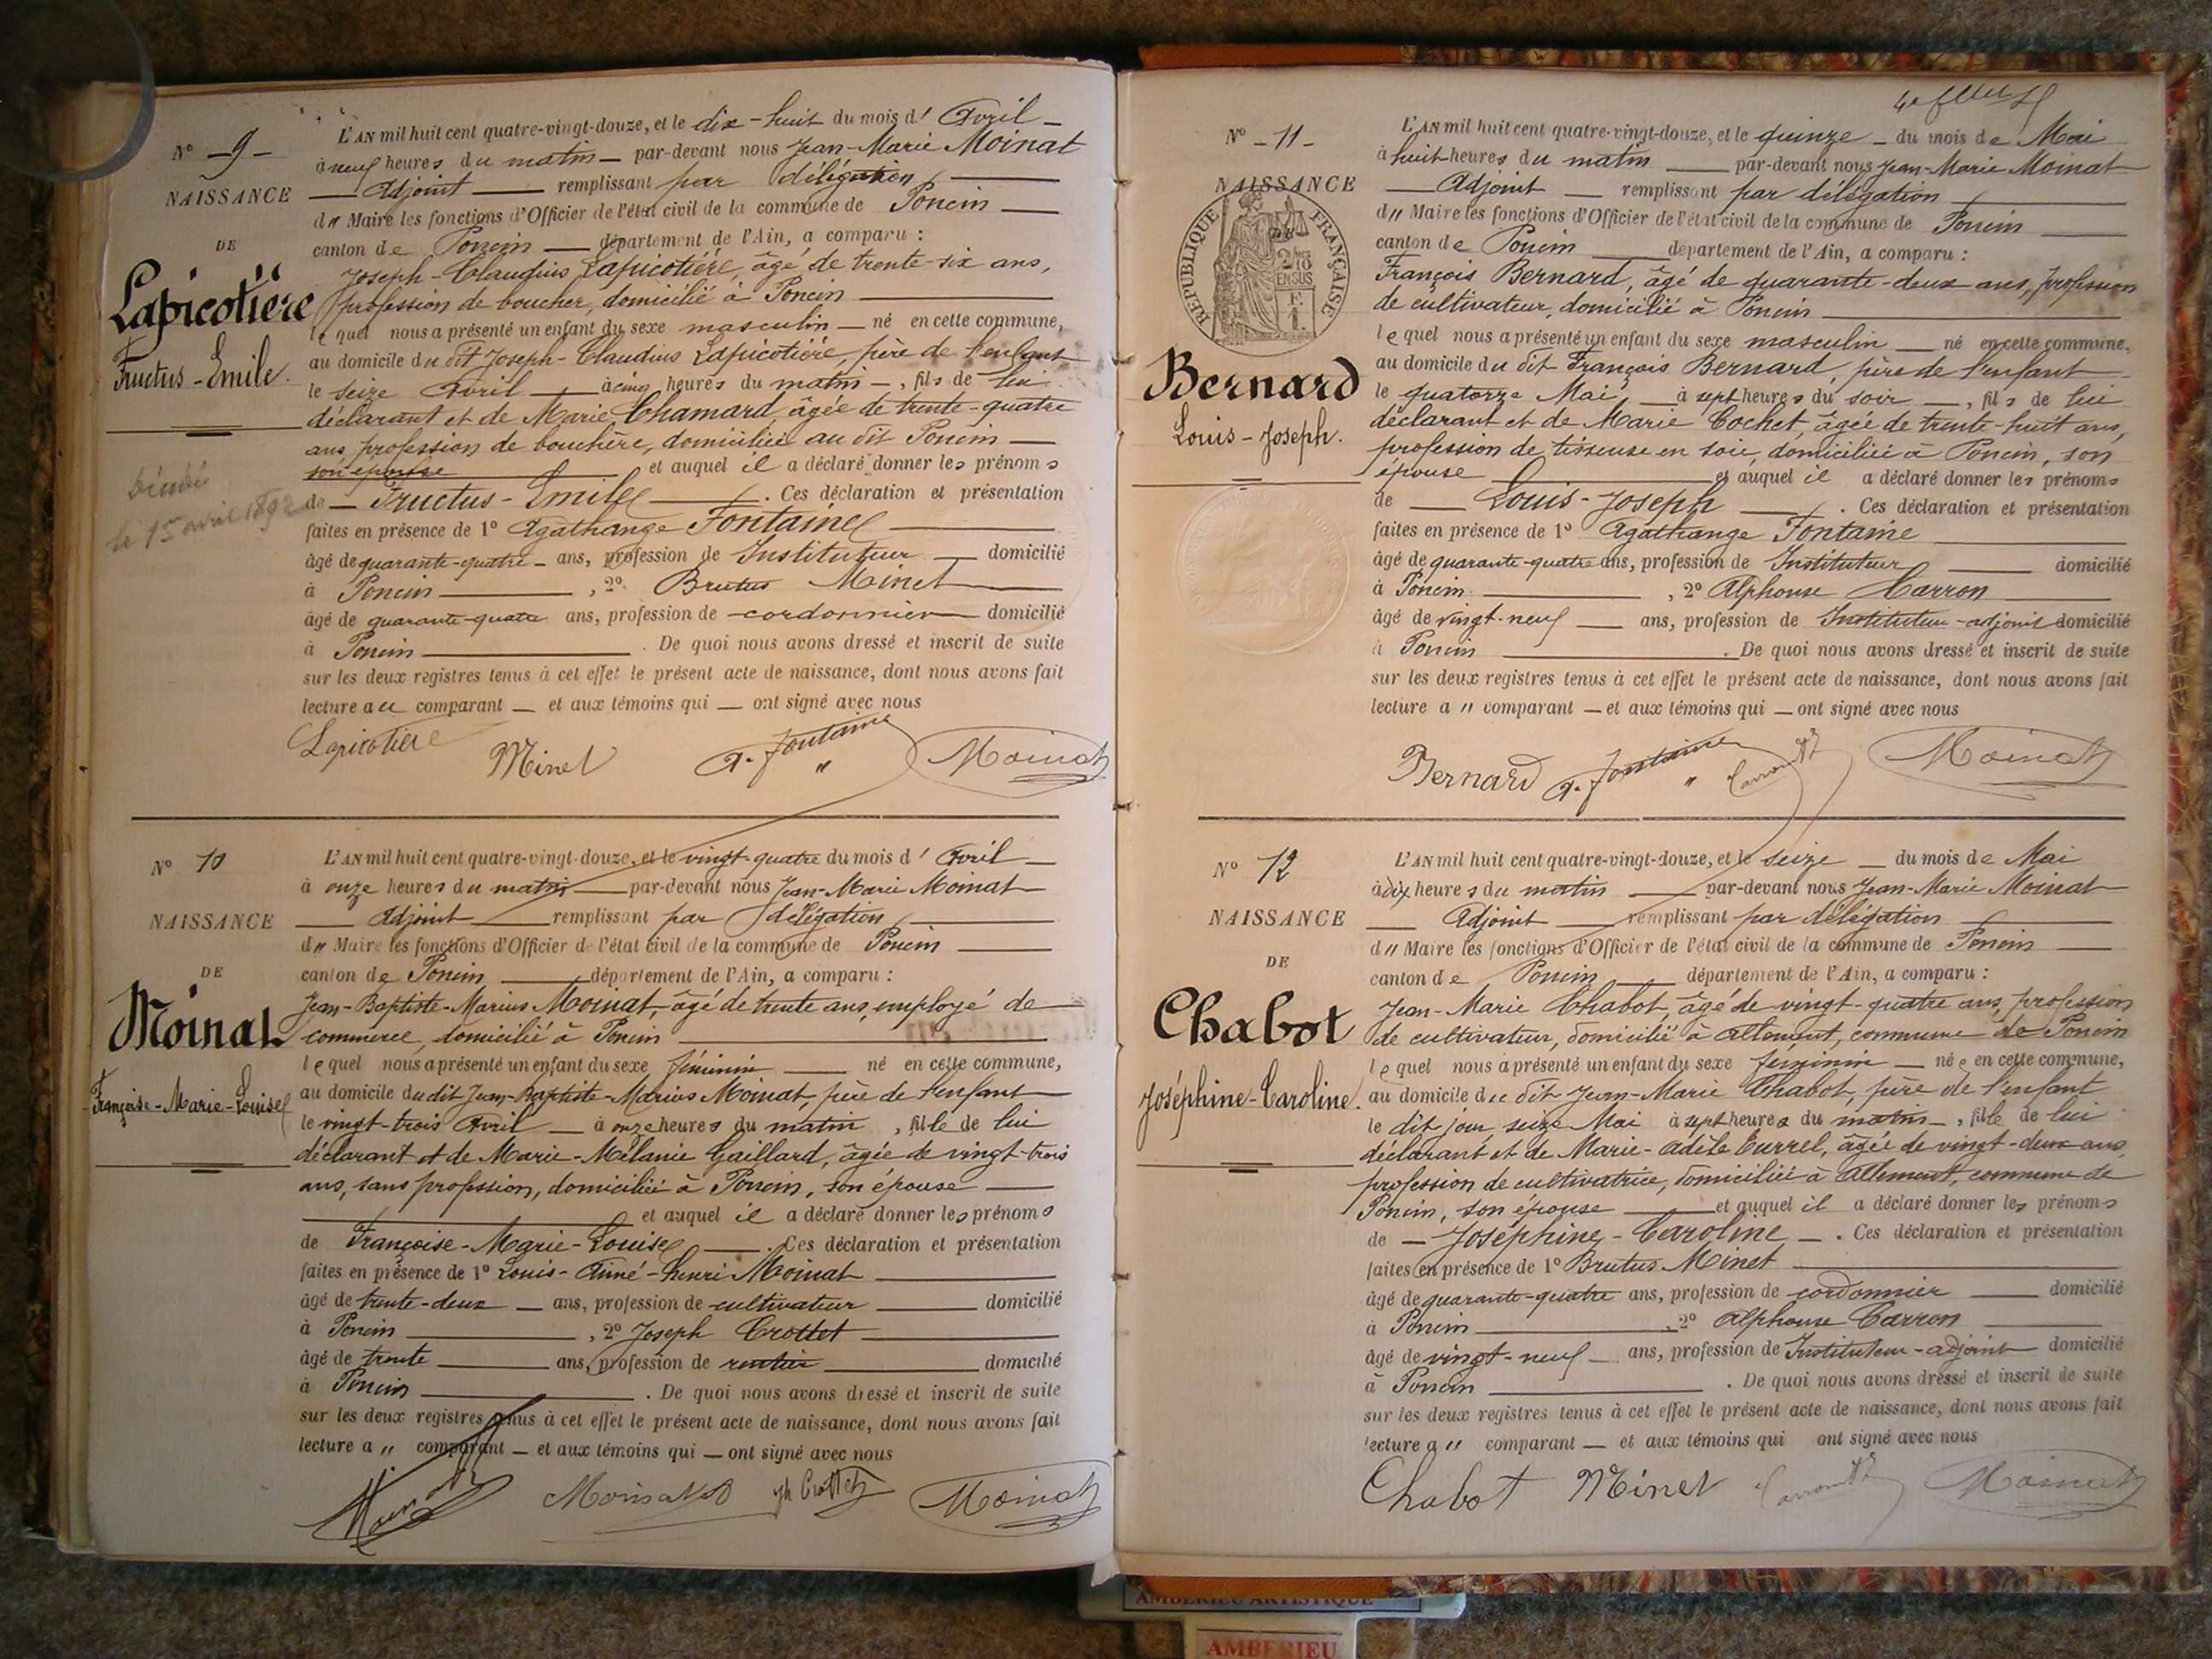 N° -9-
NAISSANCE
DE
Lapicotière
Fructus-Emile.
Décédé
le 1er avril 1892
L'AN mil huit cent quatre-vingt-douze, et le dix-huit du mois d' Avril
à neuf heures du matin par-devant nous Jean-Marie Moinat
Adjoint remplissant par délégation
d" Maire les fonctions d'Officier de l'état civil de la commune de Poncin
canton de Poncin département de l'Ain, a comparu :
Joseph-Claudius Lapicotière, âgé de trente-six ans,
profession de boucher, domicilié à Poncin
lequel nous a présenté un enfant du sexe masculin né en cette commune,
au domicile du dit Joseph-Claudius Lapicotière, père de l'enfant
le seize Avril à cinq heures du matin, fils de lui
déclarant et de Marie Chamard, âgée de trente-quatre
ans, profession de bouchère, domiciliée au dit Poncin
son épouse et auquel il a déclaré donner les prénoms
de Fructus-Emile. Ces déclaration et présentation
faites en présence de 1° Agathange Fontaine
âgé de quarante-quatre ans, profession de Instituteur domicilié
à Poncin, 2° Brutus Minet
âgé de quarante-quatre ans, profession de cordonnier domicilié
à Poncin. De quoi nous avons dressé et inscrit de suite
sur les deux registres tenus à cet effet le présent acte de naissance, dont nous avons fait
lecture au comparant et aux témoins qui ont signé avec nous
Lapicotière Minet A. Fontaine Moinat
N° 10
NAISSANCE
DE
Moinat
Françoise-Marie-Louise
L'AN mil huit cent quatre-vingt-douze, et le vingt-quatre du mois d' Avril
à onze heures du matin par-devant nous Jean-Marie Moinat
Adjoint remplissant par délégation
d" Maire les fonctions d'Officier de l'état civil de la commune de Poncin
canton de Poncin département de l'Ain, a comparu :
Jean-Baptiste-Marius Moinat, âgé de trente ans, employé de
commerce, domicilié à Poncin
lequel nous a présenté un enfant du sexe féminin né en cette commune,
au domicile du dit Jean-Baptiste-Marius Moinat, père de l'enfant
le vingt-trois Avril à onze heures du matin, fille de lui
déclarant et de Marie-Mélanie Gaillard, âgée de vingt-trois
ans, sans profession, domiciliée à Poncin, son épouse
et auquel il a déclaré donner les prénoms
de Françoise-Marie-Louise. Ces déclaration et présentation
faites en présence de 1° Louis-Aimé-Henri Moinat
âgé de trente-deux ans, profession de cultivateur domicilié
à Poncin, 2° Joseph Crottet
âgé de trente ans, profession de rentier domicilié
à Poncin. De quoi nous avons dressé et inscrit de suite
sur les deux registres tenus à cet effet le présent acte de naissance, dont nous avons fait
lecture a " comparant et aux témoins qui ont signé avec nous
Moinat Jh Crottet Moinat
N° -11-
NAISSANCE
RÉPUBLIQUE FRANÇAISE
Bernard
Louis-Joseph.
L'AN mil huit cent quatre-vingt-douze, et le quinze du mois de Mai
à huit heures du matin par-devant nous Jean-Marie Moinat
Adjoint remplissant par délégation
d" Maire les fonctions d'Officier de l'état civil de la commune de Poncin
canton de Poncin département de l'Ain, a comparu :
François Bernard, âgé de quarante-deux ans, profession
de cultivateur, domicilié à Poncin
lequel nous a présenté un enfant du sexe masculin né en cette commune,
au domicile du dit François Bernard, père de l'enfant
le quatorze Mai à sept heures du soir, fils de lui
déclarant et de Marie Cochet, âgée de trente-huit ans,
profession de tisseuse en soie, domiciliée à Poncin, son
épouse et auquel il a déclaré donner les prénoms
de Louis-Joseph. Ces déclaration et présentation
faites en présence de 1° Agathange Fontaine
âgé de quarante-quatre ans, profession de Instituteur domicilié
à Poncin, 2° Alphonse Carron
âgé de vingt-neuf ans, profession de Instituteur-adjoint domicilié
à Poncin. De quoi nous avons dressé et inscrit de suite
sur les deux registres tenus à cet effet le présent acte de naissance, dont nous avons fait
lecture a " comparant et aux témoins qui ont signé avec nous
Bernard A. Fontaine Carron Moinat
N° 12
NAISSANCE
DE
Chabot
Joséphine-Caroline.
L'AN mil huit cent quatre-vingt-douze, et le seize du mois de Mai
à dix heures du matin par-devant nous Jean-Marie Moinat
Adjoint remplissant par délégation
d" Maire les fonctions d'Officier de l'état civil de la commune de Poncin
canton de Poncin département de l'Ain, a comparu :
Jean-Marie Chabot, âgé de vingt-quatre ans, profession
de cultivateur, domicilié à Allement, commune de Poncin
lequel nous a présenté un enfant du sexe féminin née en cette commune,
au domicile du dit Jean-Marie Chabot, père de l'enfant
le dit jour, seize Mai à sept heures du matin, fille de lui
déclarant et de Marie-Adèle Currel, âgée de vingt-deux ans,
profession de cultivatrice, domiciliée à Allement, commune de
Poncin, son épouse et auquel il a déclaré donner les prénoms
de Joséphine-Caroline. Ces déclaration et présentation
faites en présence de 1° Brutus Minet
âgé de quarante-quatre ans, profession de cordonnier domicilié
à Poncin, 2° Alphonse Carron
âgé de vingt-neuf ans, profession de Instituteur-adjoint domicilié
à Poncin. De quoi nous avons dressé et inscrit de suite
sur les deux registres tenus à cet effet le présent acte de naissance, dont nous avons fait
lecture a " comparant et aux témoins qui ont signé avec nous
Chabot Minet Carron Moinat
AMBERIEU ARTISTIQUE
AMBERIEU